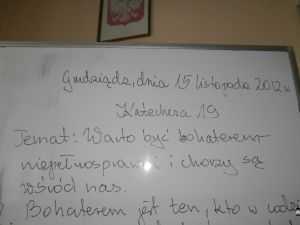 Grudziądz, dnia 15 listopada 2012 r.
Katecheza 19
Temat: Warto być bohaterem
niepełnosprawni i chorzy są
wśród nas.
Bohaterem jest ten, kto w